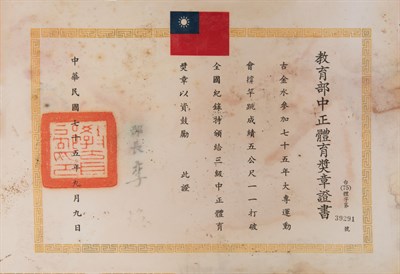 教育部中正體育獎章證書
台(75)體字第
39291
號
古金水參加七十五年大專運動
會撐竿跳成績五公尺一一打破
全國紀錄特頒給三級中正體育
獎章以資鼓勵　此證
部長 李
中華民國七十五年九月九日